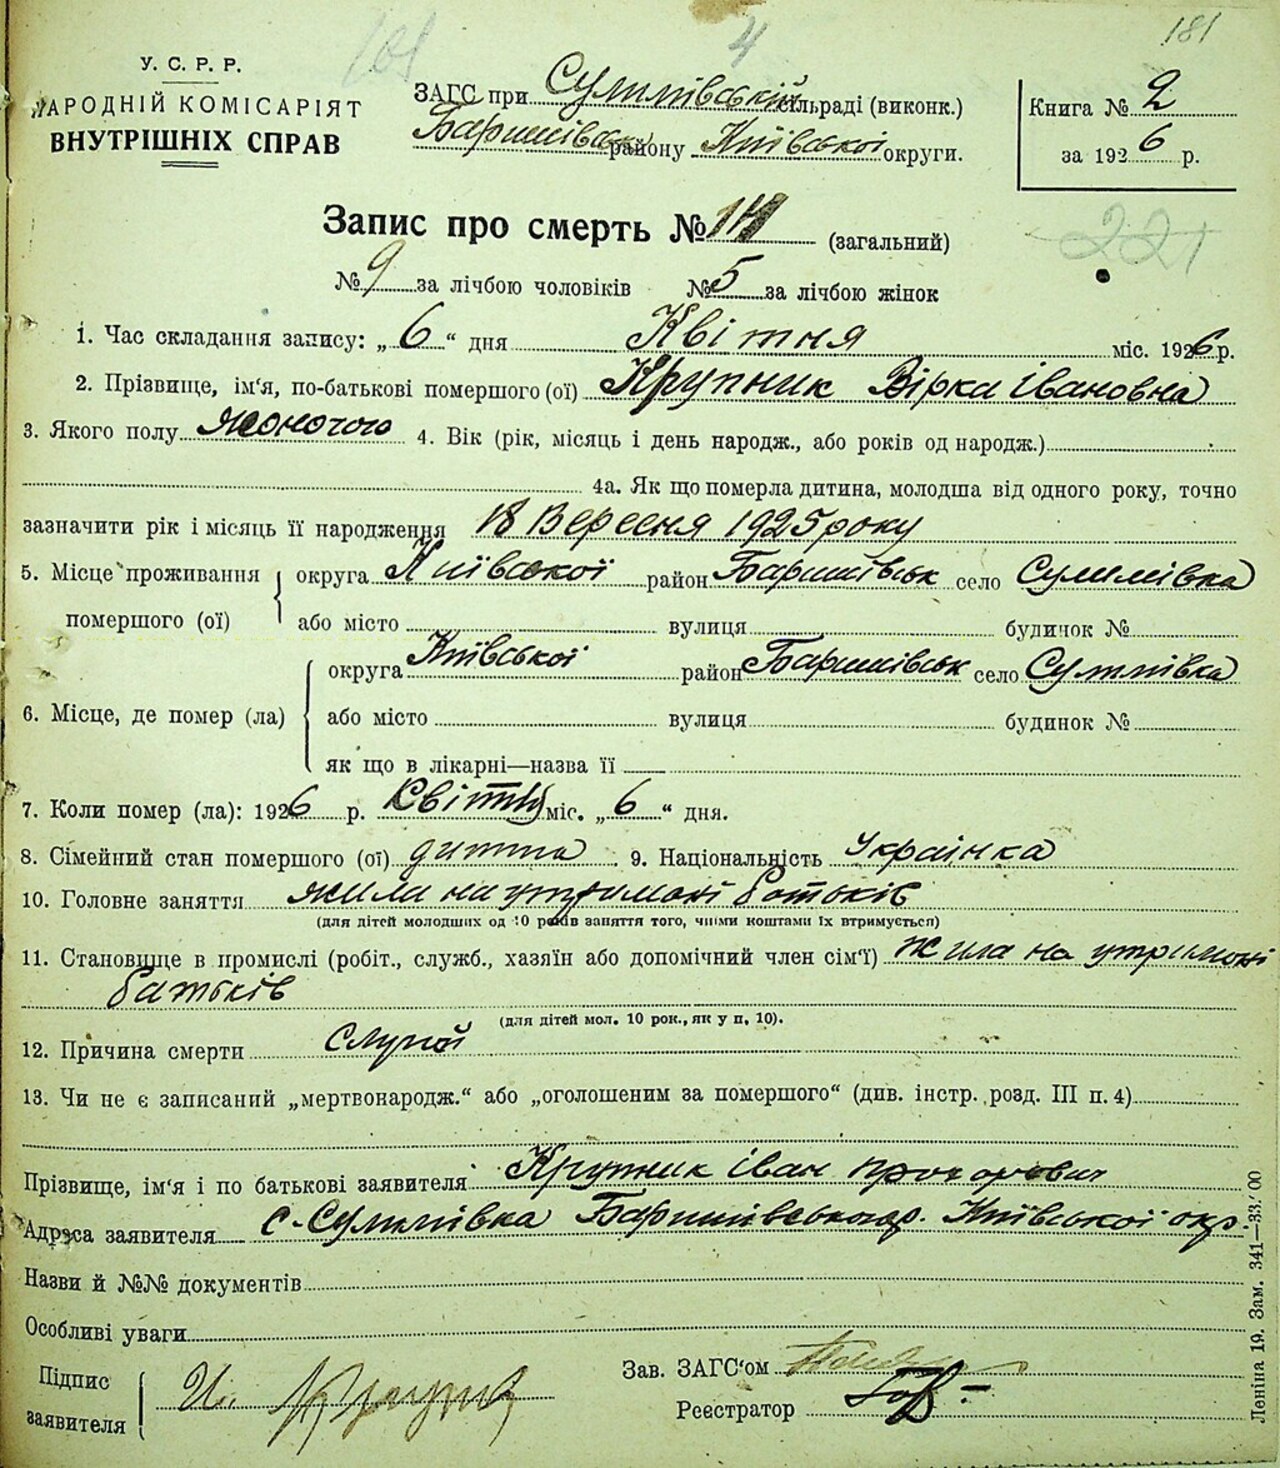 181
4
У. С. Р. Р.
НАРОДНІЙ КОМІСАРІЯТ
ВНУТРІШНІХ СПРАВ
ЗАГС при Сулимівській сільраді (виконк.)
Баришівськ району Київської округи.
Книга № 2
за 1926 р.
Запис про смерть № 14 (загальний)
221
№ 9 за лічбою чоловіків № 5 за лічбою жінок
1. Час складання запису: „6“ дня Квітня міс. 1926 р.
2. Прізвище, ім'я, по-батькові помершого (ої) Крупник Вірка Івановна
3. Якого полу жоночого 4. Вік (рік, місяць і день народж., або років од народж.)
4а. Як що померла дитина, молодша від одного року, точно
зазначити рік і місяць її народження 18 Вересня 1925 року
5. Місце проживання помершого (ої) округа Київської район Баришівськ село Сулимівка
або місто вулиця будинок №
6. Місце, де помер (ла) округа Київської район Баришівськ село Сулимівка
або місто вулиця будинок №
як що в лікарні—назва її
7. Коли помер (ла): 1926 р. Квітня міс. „6“ дня.
8. Сімейний стан помершого (ої) дитина 9. Національність Українка
10. Головне заняття жила на утримані батьків
(для дітей молодших од 10 років заняття того, чиїми коштами їх втримується)
11. Становище в промислі (робіт., служб., хазяїн або допомічний член сім'ї) жила на утримані
батьків
(для дітей мол. 10 рок., як у п. 10).
12. Причина смерти
13. Чи не є записаний „мертвонародж.“ або „оголошеним за помершого“ (див. інстр. розд. III п. 4)
Прізвище, ім'я і по батькові заявителя Крупник Іван Прокорович
Адреса заявителя с. Сулимівка Баришівського р. Київської окр.
Назви й №№ документів
Особливі уваги
Підпис заявителя Ив. Крупник
Зав. ЗАГС'ом
Реєстратор
Леніна 19. Зам. 341—33.'00